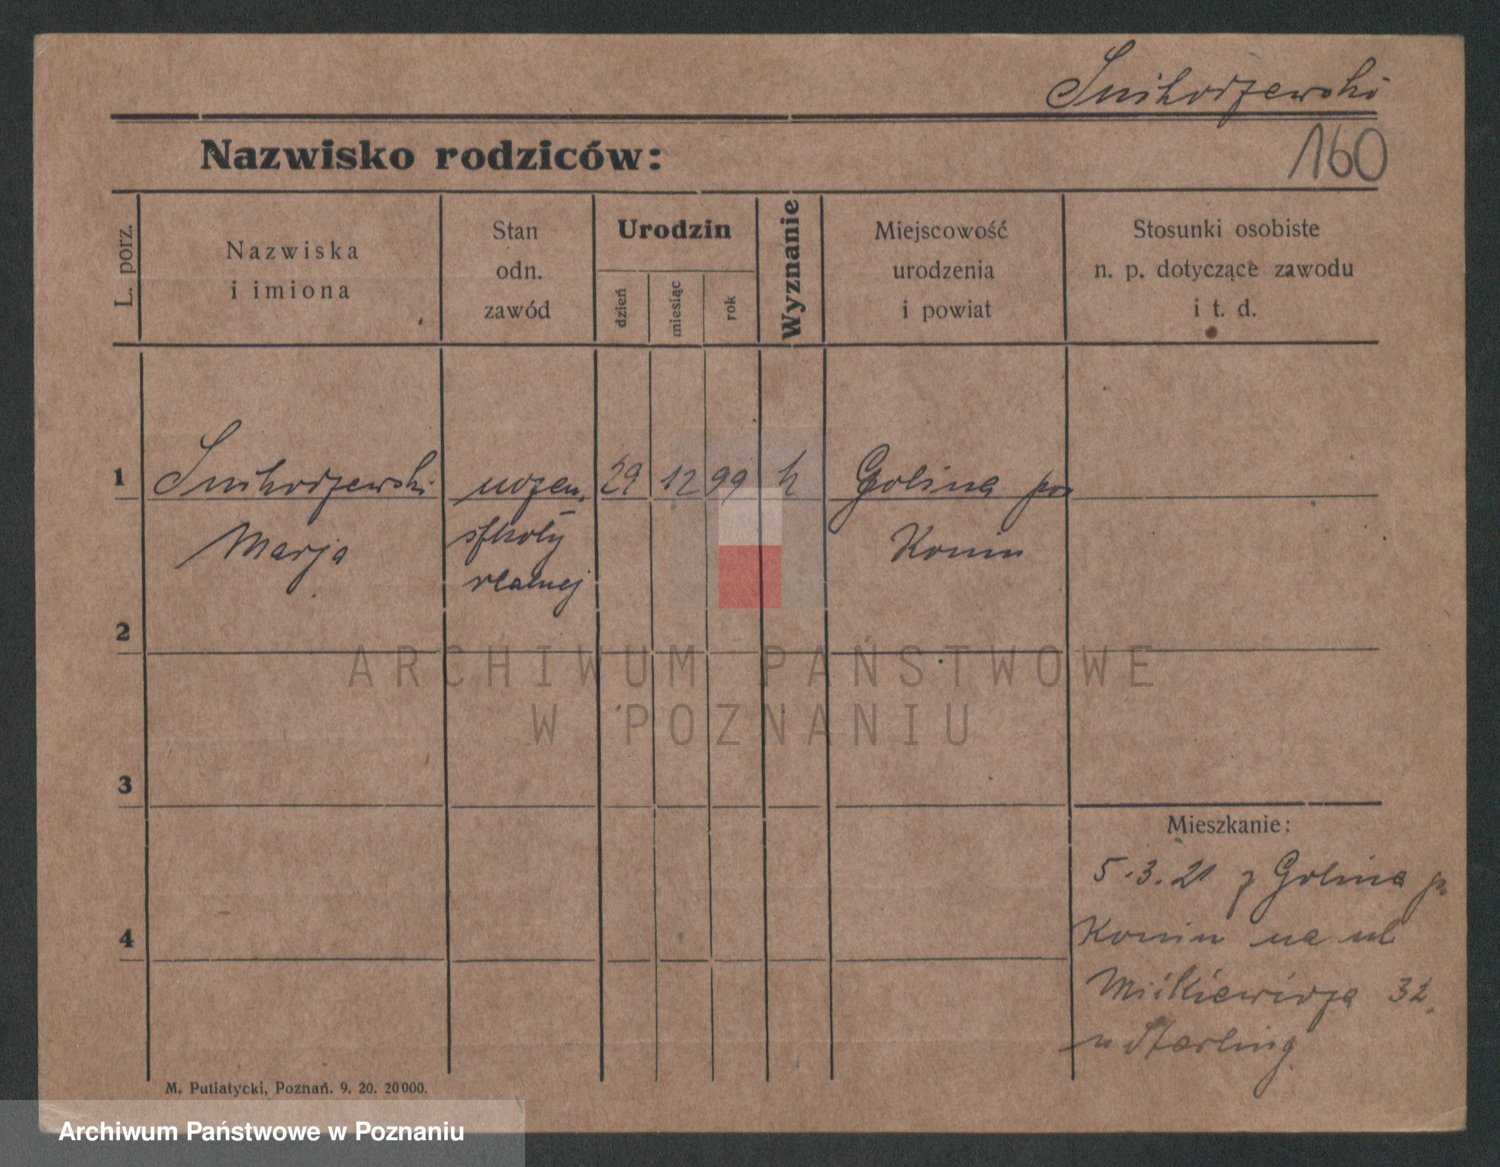 160
Nazwisko rodziców:
L. porz.
Nazwiska
i imiona
Stan
odn.
zawód
Urodzin
dzień
miesiąc
rok
Wyznanie
Miejscowość
urodzenia
i powiat
Stosunki osobiste
n. p. dotyczące zawodu
i t. d.
1
29 12 99 k Golina
Marja
Konin
szkoły
realnej
2
ARCHIWUM PAŃSTWOWE
W POZNANIU
3
Mieszkanie:
5.3.21 z Golina
4
Konin na ul
Mickiewicza 32
u Sterling
M. Putiatycki, Poznań. 9. 20. 20000.
Archiwum Państwowe w Poznaniu